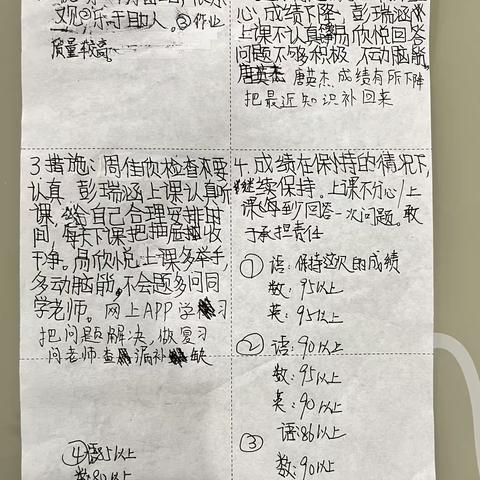 观②乐于助人。③作业
质量较高。
心,成绩下降,彭瑞涵
上课不认真,易欣悦回答
问题不够积极,不动脑筋,
唐英杰、成绩有所下降
把最近知识补回来
3.措施:周佳欣检查不要
认真,彭瑞涵上课认真听
课,给自己合理安排时
间,每天下课把抽屉收
干净。易欣悦上课多举手,
多动脑筋,不会题多问同
学老师。网上APP学习
把问题解决,做复习
问老师查漏补缺
4.成绩在保持的情况下,
继续保持。上课不分心/上
课每到回答一次问题。敢
于承担责任
①语:保持这次的成绩
数:95以上
英:95以上
②语:90以上
数:95以上
英:90以上
③语:86以上
数:90以上
④语85以上
数80以上